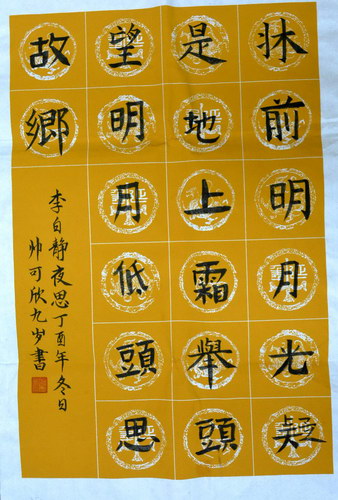 牀前明月光疑
是地上霜舉頭
望明月低頭思
故鄉
李白静夜思丁酉年冬日
帅可欣九岁書